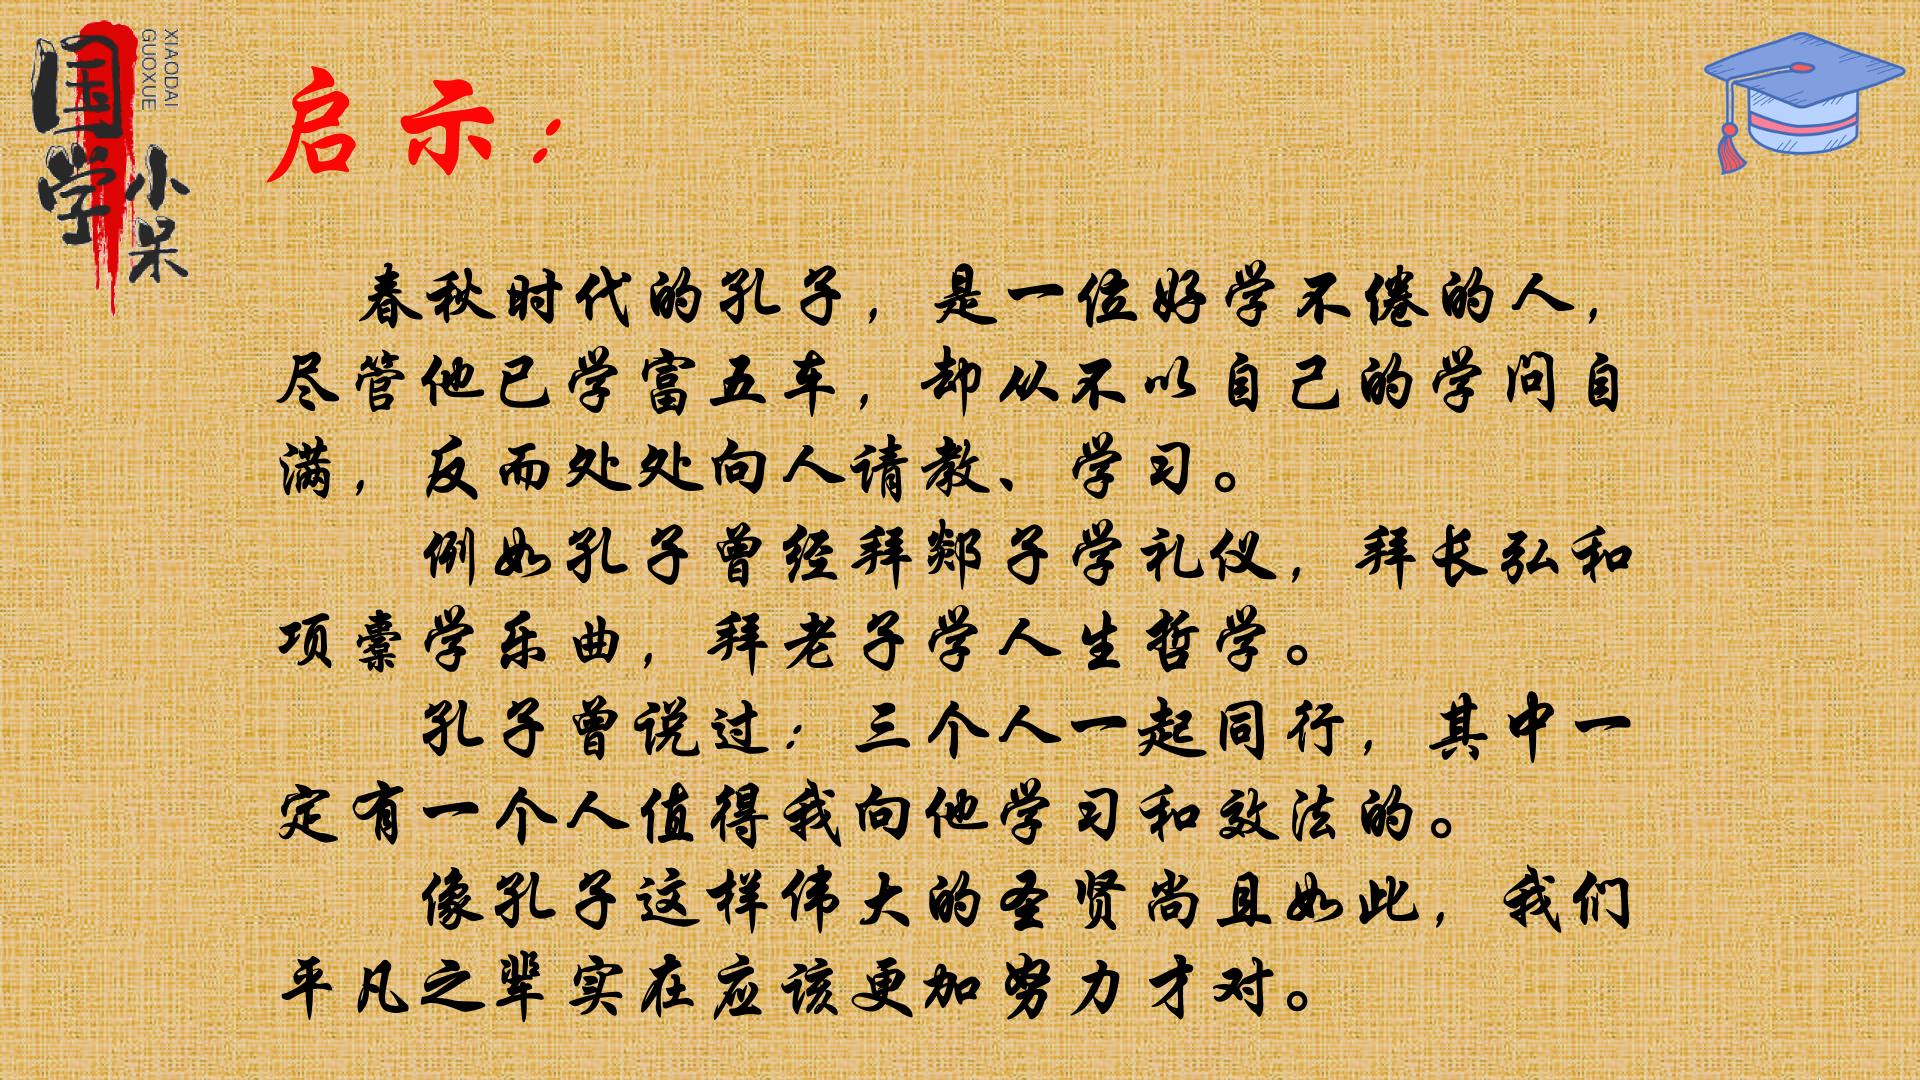 国学
小呆
XIAODAI
GUOXUE
启示：
春秋时代的孔子，是一位好学不倦的人，
尽管他已学富五车，却从不以自己的学问自
满，反而处处向人请教、学习。
例如孔子曾经拜郯子学礼仪，拜长弘和
项橐学乐曲，拜老子学人生哲学。
孔子曾说过：三个人一起同行，其中一
定有一个人值得我向他学习和效法的。
像孔子这样伟大的圣贤尚且如此，我们
平凡之辈实在应该更加努力才对。